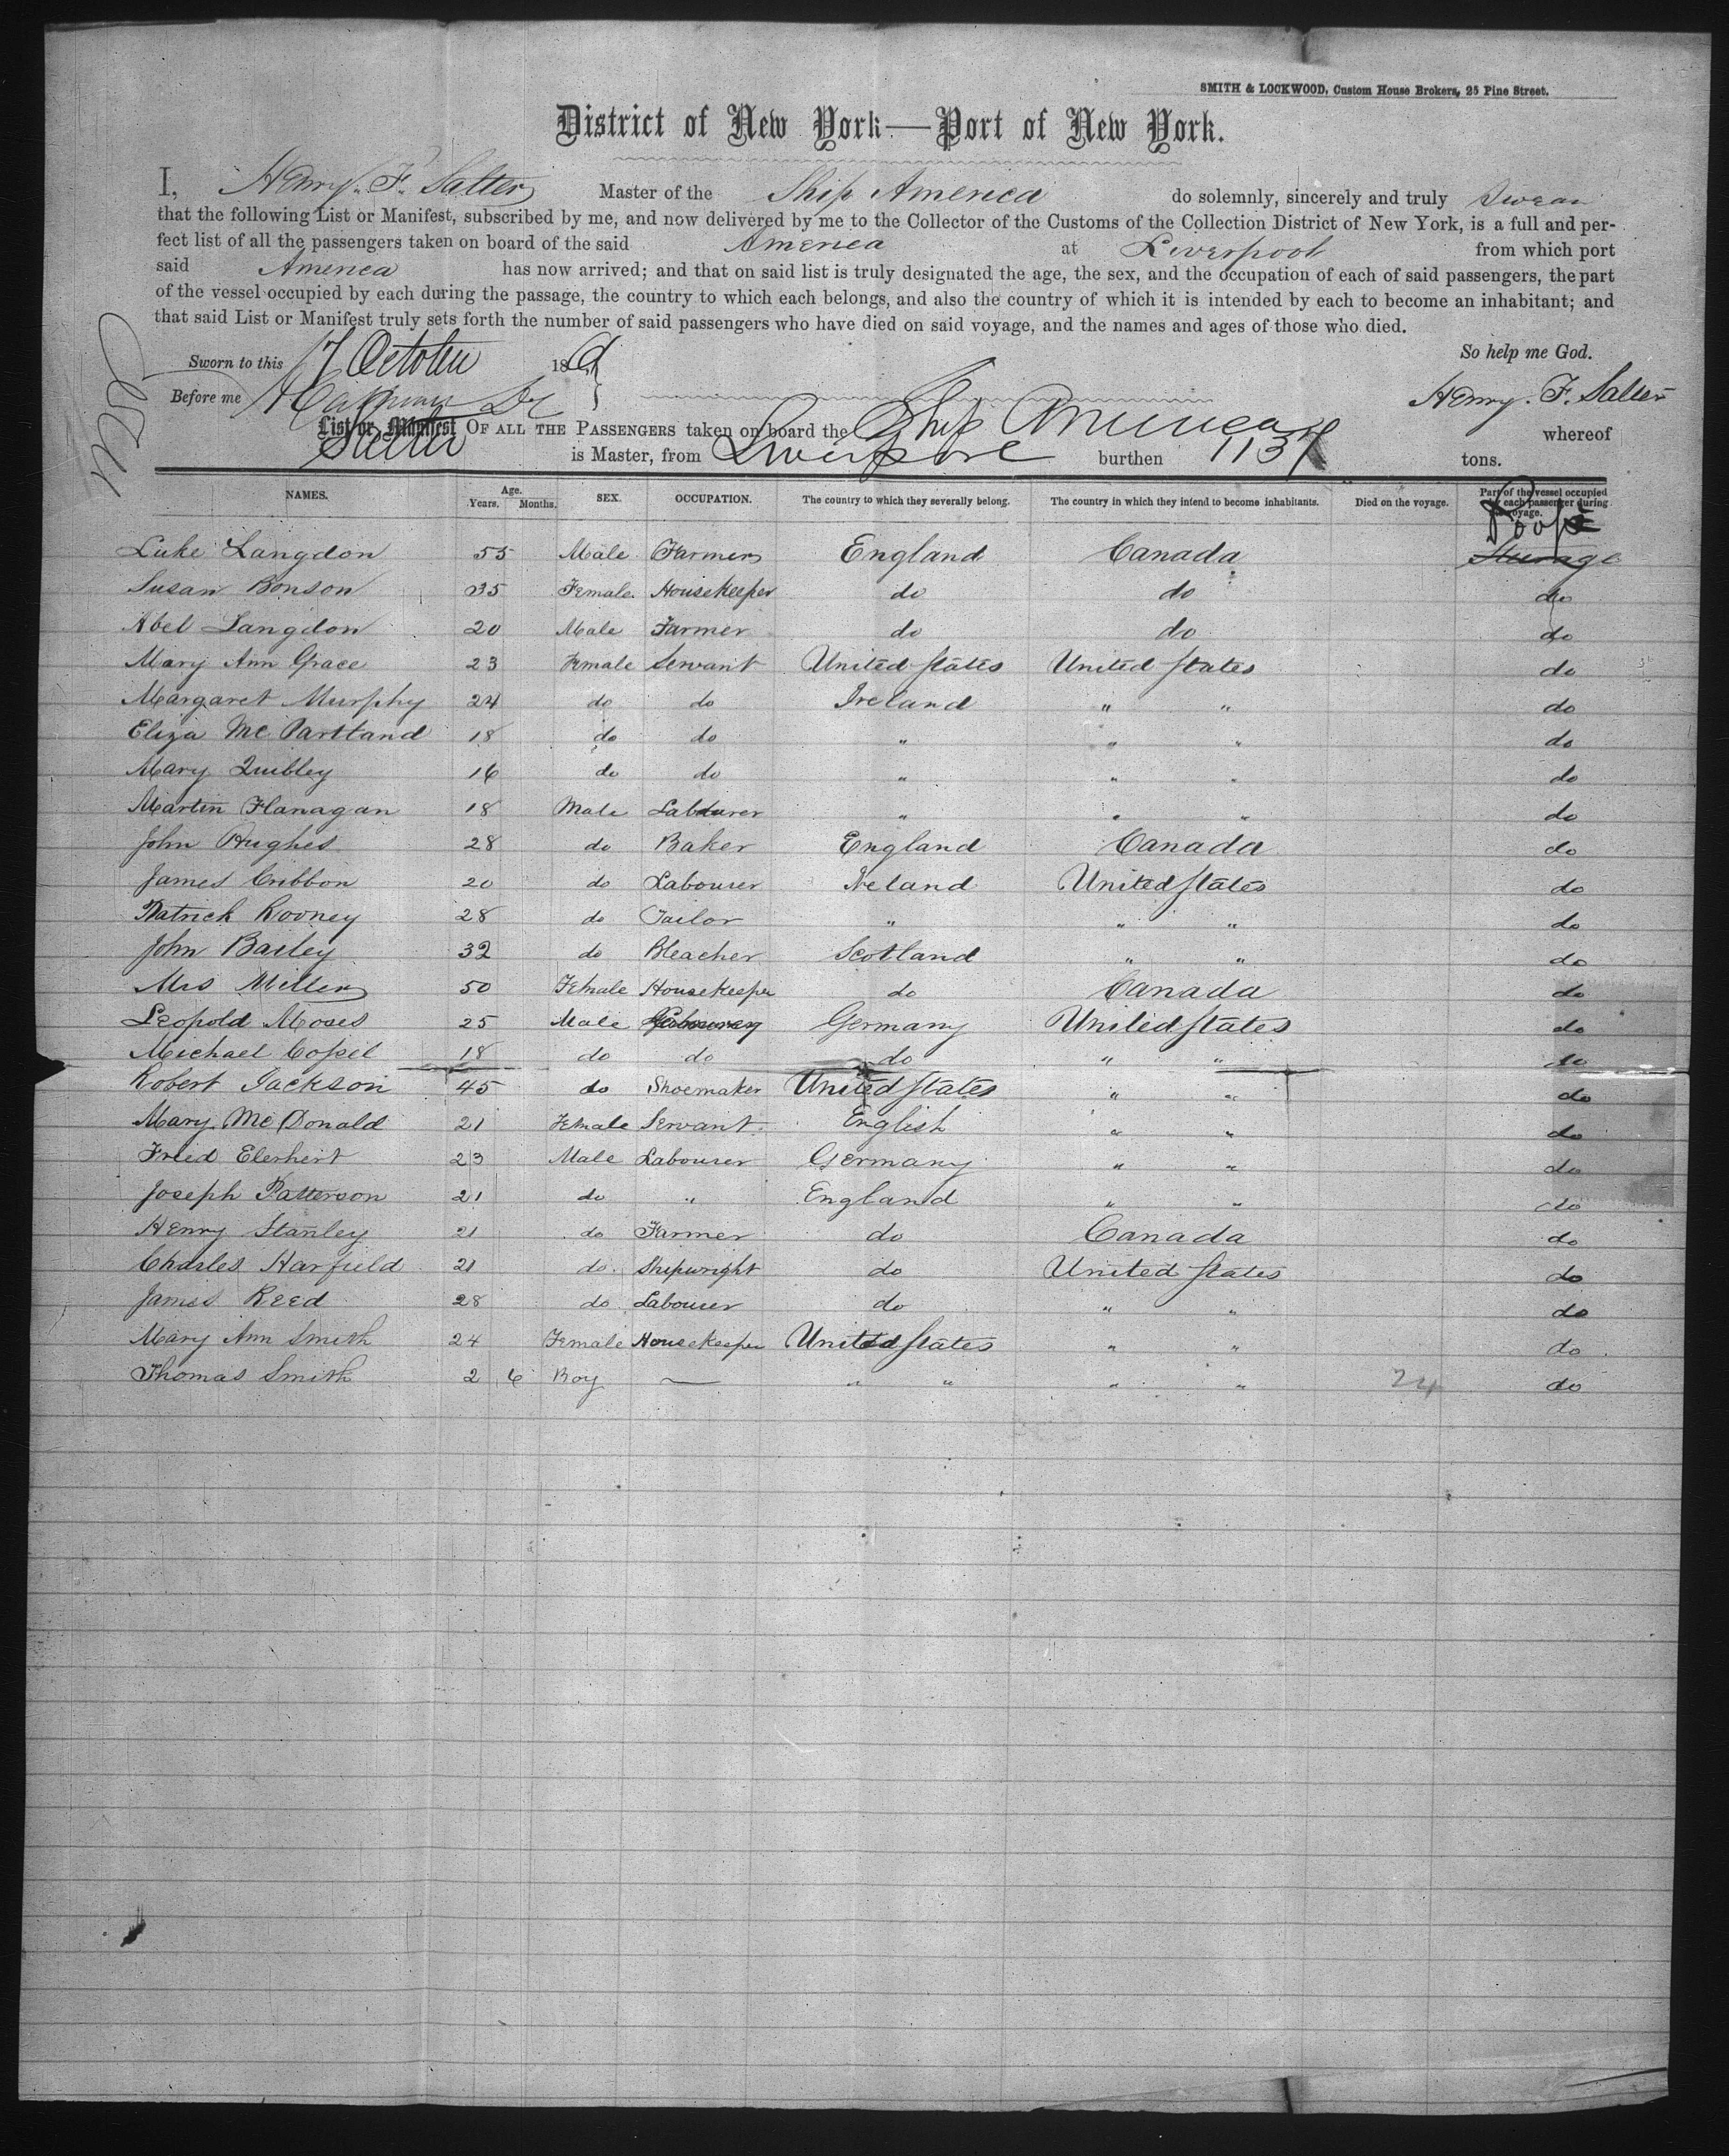 SMITH & LOCKWOOD, Custom House Brokers, 25 Pine Street.
District of New York—Port of New York.
I, Henry. F. Salter Master of the Ship America do solemnly, sincerely and truly Swear
that the following List or Manifest, subscribed by me, and now delivered by me to the Collector of the Customs of the Collection District of New York, is a full and per-
fect list of all the passengers taken on board of the said America at Liverpool from which port
said America has now arrived; and that on said list is truly designated the age, the sex, and the occupation of each of said passengers, the part
of the vessel occupied by each during the passage, the country to which each belongs, and also the country of which it is intended by each to become an inhabitant; and
that said List or Manifest truly sets forth the number of said passengers who have died on said voyage, and the names and ages of those who died.
So help me God.
Sworn to this 7 October 186
Before me
Henry. F. Salter
List or Manifest OF ALL THE PASSENGERS taken on board the Ship America whereof
Salter is Master, from Liverpool burthen 1137 tons.
NAMES. Age. Years. Months. SEX. OCCUPATION. The country to which they severally belong. The country in which they intend to become inhabitants. Died on the voyage. Part of the vessel occupied by each passenger during the voyage.
Poop
Luke Langdon 55 Male Farmer England Canada Steerage
Susan Bonson 35 Female Housekeeper do do do
Abel Langdon 20 Male Farmer do do do
Mary Ann Grace 23 Female Servant United States United States do
Margaret Murphy 24 do do Ireland " " do
Eliza Mc Partland 18 do do " " " do
Mary Quibley 16 do do " " " do
Martin Flanagan 18 Male Labourer " " " do
John Hughes 28 do Baker England Canada do
James Cribbon 20 do Labourer Ireland United States do
Patrick Rooney 28 do Tailor " " " do
John Bailey 32 do Bleacher Scotland " " do
Mrs Miller 50 Female Housekeeper do Canada do
Leopold Moses 25 Male Labourer Germany United States do
Michael Cossel 18 do do do " " do
Robert Jackson 45 do Shoemaker United States " " do
Mary Mc Donald 21 Female Servant English " " do
Fried Elerhert 23 Male Labourer Germany " " do
Joseph Patterson 21 do " England " " do
Henry Stanley 21 do Farmer do Canada do
Charles Harfield 21 do Shipwright do United States do
James Reed 28 do Labourer do " " do
Mary Ann Smith 24 Female Housekeeper United States " " do
Thomas Smith 2 6 Boy — " " " " 24 do